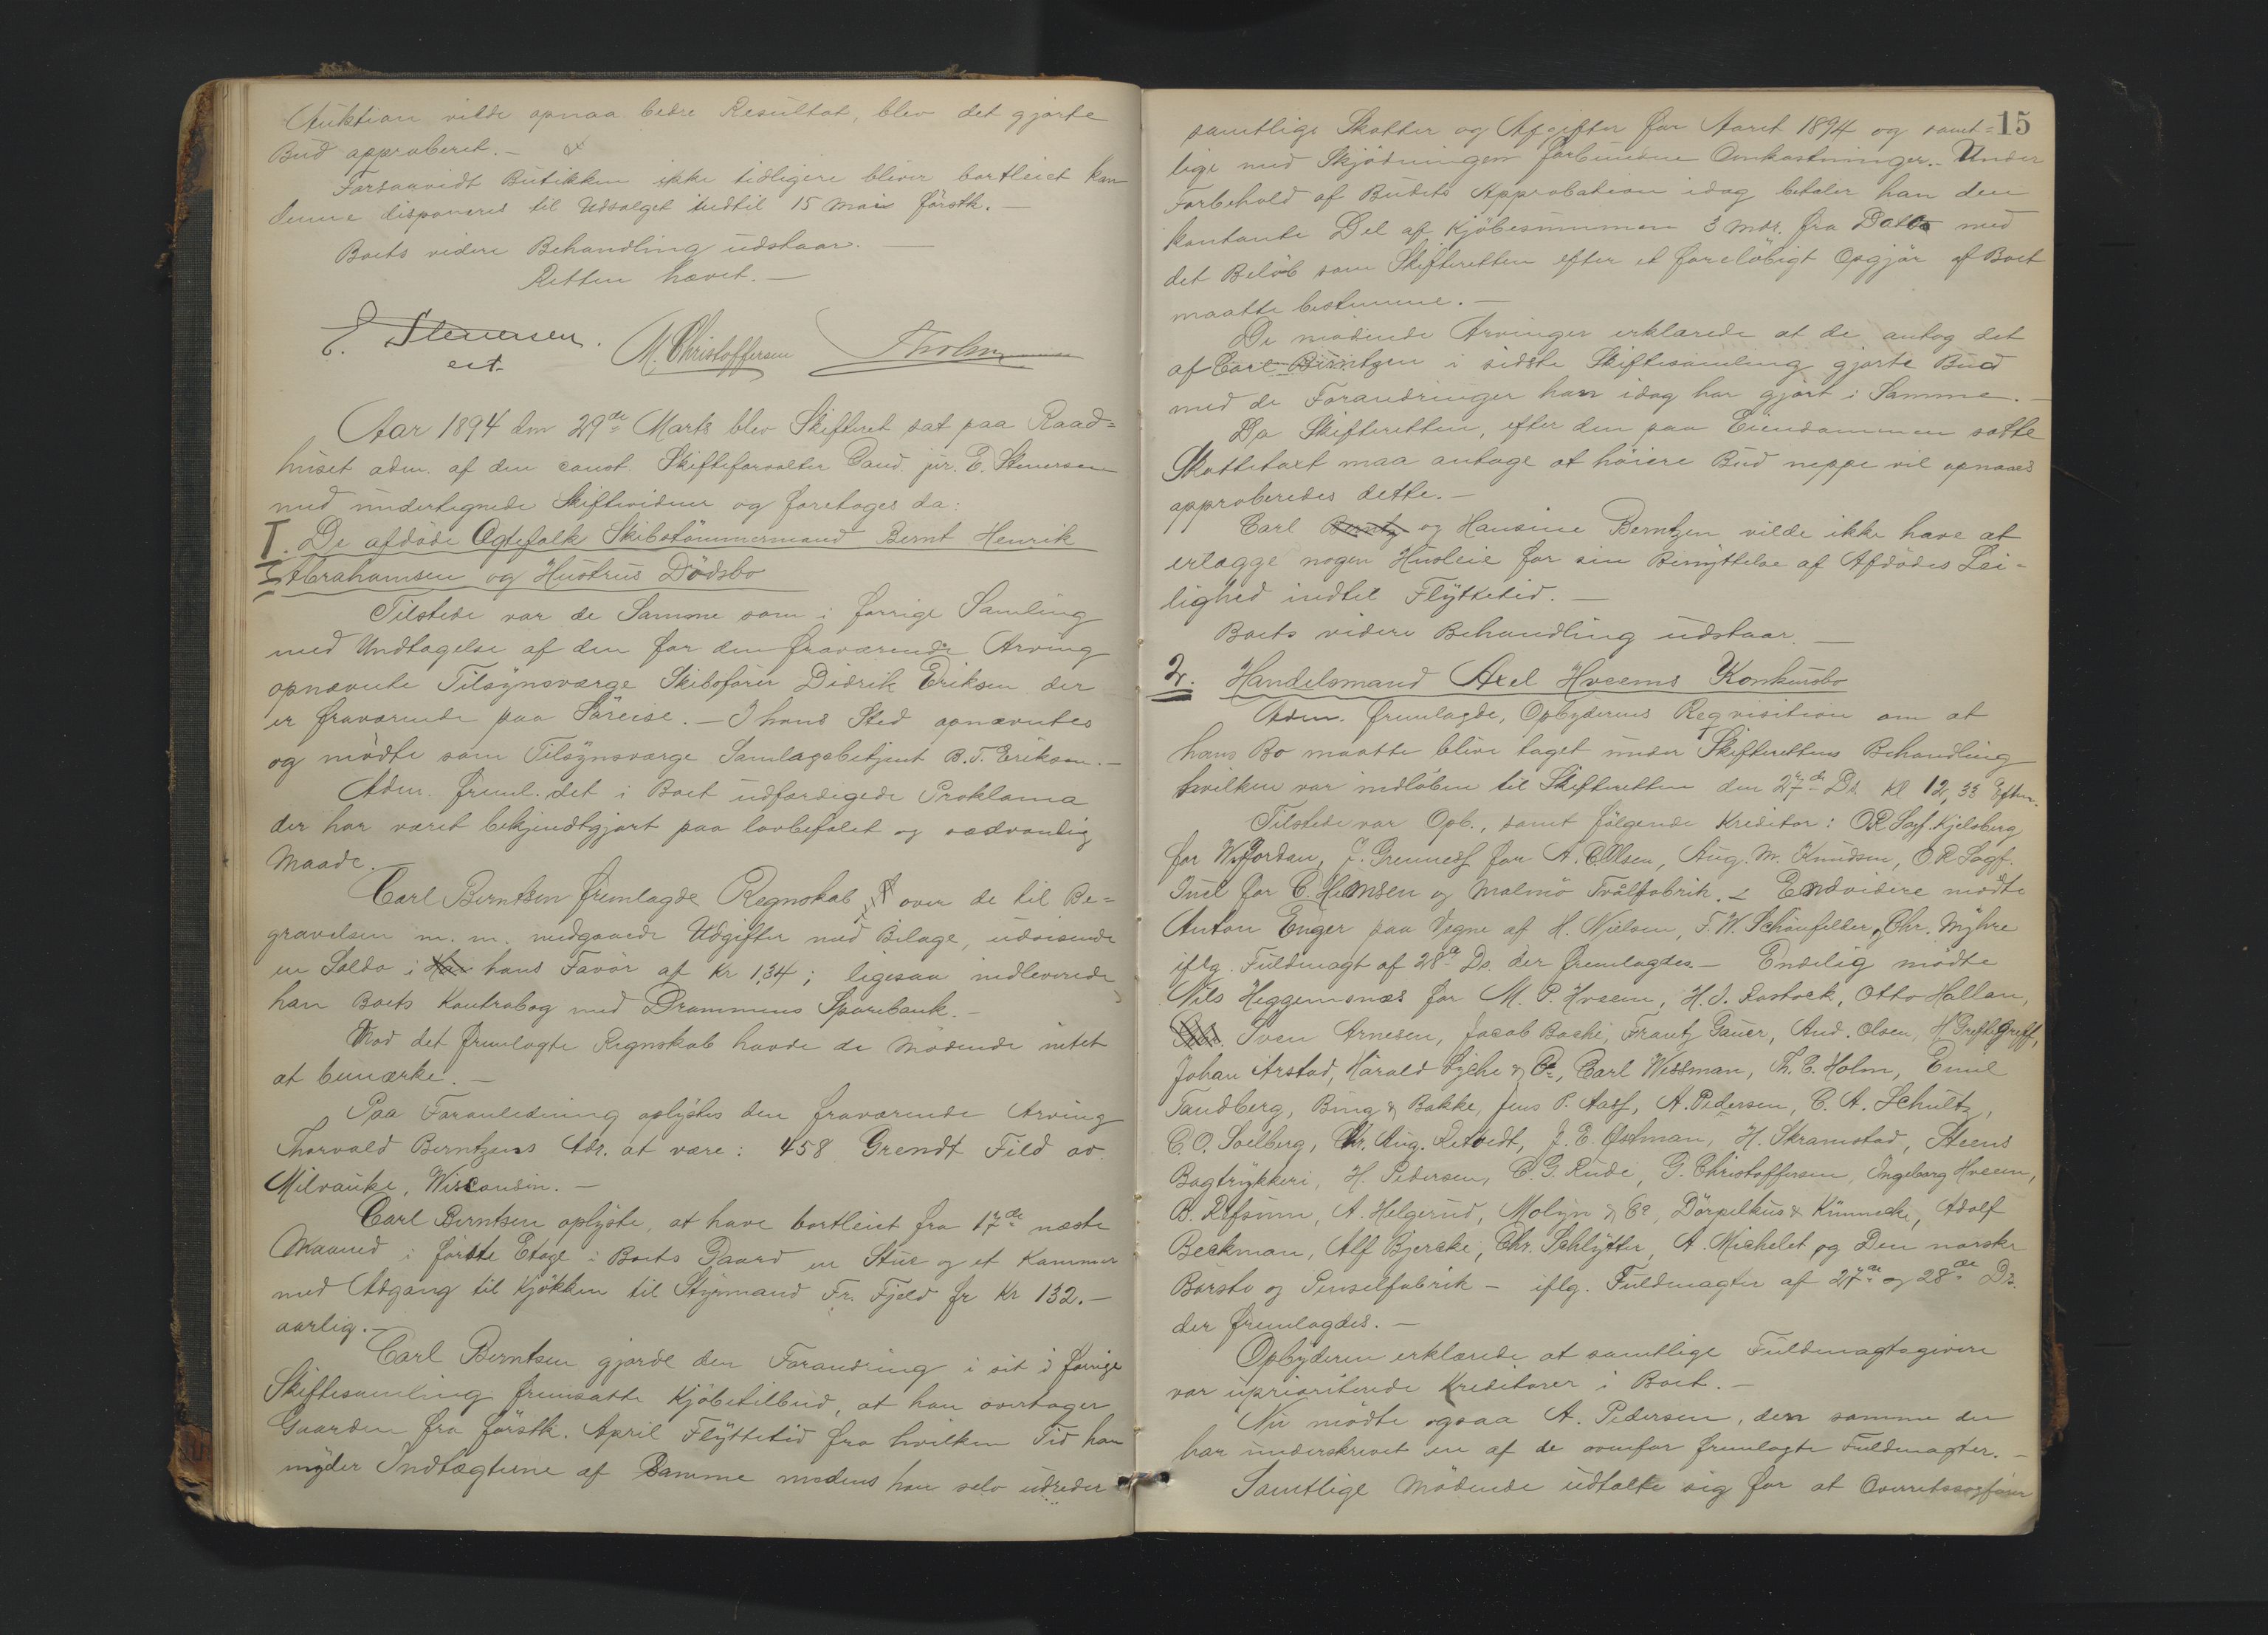 Auktion vilde opnaa bedre Resultat, blev det gjorte
Bud approberet. –
Forsaavidt Butikken ikke tidligere bliver bortleiet kan
denne disponeres til Udsalget indtil 15 Mai förstk. –
Boets videre Behandling udstaar. –
Retten hævet. –
E. Stenersen. M. Christoffersen
cst.
Aar 1894 den 29de Marts blev Skifteret sat paa Raad=
huset adm. af den const. Skifteforvalter Cand. jur. E. Stenersen
med undertegnede Skiftevidner og foretoges da:
I. De afdöde Ægtefolk Skibstömmermand Bernt Henrik
Abrahamsen og Hustrus Dödsbo
Tilstede var de Samme som i forrige Samling
med Undtagelse af den for den fraværende Arving
opnævnte Tilsynsværge Skibsförer Didrik Eriksen der
er fraværende paa Söreise. – I hans Sted opnævntes
og mödte som Tilsynsværge Samlagsbetjent B. T. Eriksen. –
Adm. freml. det i Boet udfærdigede Proklama
der har været bekjendtgjort paa lovbefalet og sædvanlig
Maade. –
Carl Berntsen fremlagde Regnskab over de til Be=
gravelsen m. m. medgaaede Udgifter med Bilage, udvisende
en Saldo i hans Favör af Kr 1,34; ligesaa indleverede
han Boets Kontrabog med Drammens Sparebank. –
Mod det fremlagte Regnskab havde de Mödende intet
at bemærke. –
Paa Foranledning oplystes den fraværende Arving
Thorvald Berntzens Adr. at være: 458 Grendt Fild av.
Milvauke, Wisconsin. –
Carl Berntsen oplyste, at have bortleiet fra 17de næste
Maaned i förste Etage i Boets Gaard en Stue og et Kammer
med Adgang til Kjökken til Styrmand Fr. Fjeld for Kr 132. –
aarlig. –
Carl Berntsen gjorde den Forandring i sit i forrige
Skiftesamling fremsatte Kjöbetilbud, at han overtager
Gaarden fra förstk. April Flyttetid fra hvilken Tid han
nyder Indtægterne af Samme medens han selv udreder
15
samtlige Skatter og Afgifter for Aaret 1894 og samt=
lige med Skjödningen forbundne Omkostninger. – Under
Forbehold af Budets Approbation idag betaler han den
kontante Del af Kjöbesummen 3 Mdr. fra Dato med
det Belöb som Skifteretten efter et foreløbigt Opgjör af Boet
maatte bestemme. –
De mödende Arvinger erklærede at de antog det
af Carl Berntzen i sidste Skiftesamling gjorte Bud
med de Forandringer han idag har gjort i Samme. –
Da Skifteretten, efter den paa Eiendommen satte
Skattetaxt maa antage at höiere Bud neppe vil opnaaes
approberedes dette. –
Carl og Hansine Berntzen vilde ikke have at
erlægge nogen Husleie for sin Benyttelse af Afdödes Lei=
lighed indtil Flyttetid. –
Boets videre Behandling udstaar. –
2. Handelsmand Axel Hveems Konkursbo
Adm. fremlagde, Opbyderens Reqvisition om at
hans Bo maatte blive taget under Skifterettens Behandling
hvilken var indløben til Skifteretten den 27de Ds. Kl 12,33 Efterm.
Tilstede var Opb., samt fölgende Kreditor: O.R. Sagf. Kjelsberg
for W. Jordan, J. Grennes for A. C. Olsen, Aug. M. Knudsen, O.R. Sagf.
Juel for C. Hemsen og Malmö Tvålfabrik. – Endvidere mödte
Anton Enger paa Vegne af H. Nielsen, F. W. Schönfelder, Chr. Myhre
iflg. Fuldmagt af 28de Ds. der fremlagdes. – Endelig mödte
Nils Heggemsnæs for M. P. Hveem, H. J. Rostock, Otto Hallan,
Sven Arnesen, Jacob Bache, Frantz Gauer, And. Olsen,
Johan Arstad, Harald Lyche & Co, Carl Wessman, Th. C. Holm, Emil
Tandberg, Bing & Bakke, Jens P. Aas, A. Pedersen, C. A. Schultz,
C. O. Solberg, Chr. Aug. Retvedt, J. E. Östman, H. Skramstad, Steens
Bogtrykkeri, H. Pedersen, C. G. Rude, G. Christoffersen, Ingeborg Hveem,
B. Refsum, A. Helgerud, Molyn & Co, Dörpelkus & Künnecke, Adolf
Beckman, Alf Bjercke, Chr. Schlytter, A. Michelet og Den norske
Börste og Penselfabrik – iflg. Fuldmagter af 27de og 28de Ds.
der fremlagdes. –
Opbyderen erklærede at samtlige Fuldmagtsgivere
var uprioriterede Kreditorer i Boet. –
Nu mödte ogsaa A. Pedersen, den samme der
har underskrevet en af de ovenfor fremlagte Fuldmagter. –
Samtlige Mödende udtalte sig for at Overretssagförer